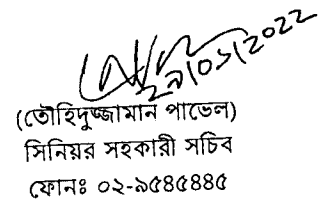 ২৯/০১/২০২২
(তৌহিদুজ্জামান পাভেল)
সিনিয়র সহকারী সচিব
ফোনঃ ০২-৯৫৪৫৪৪৫